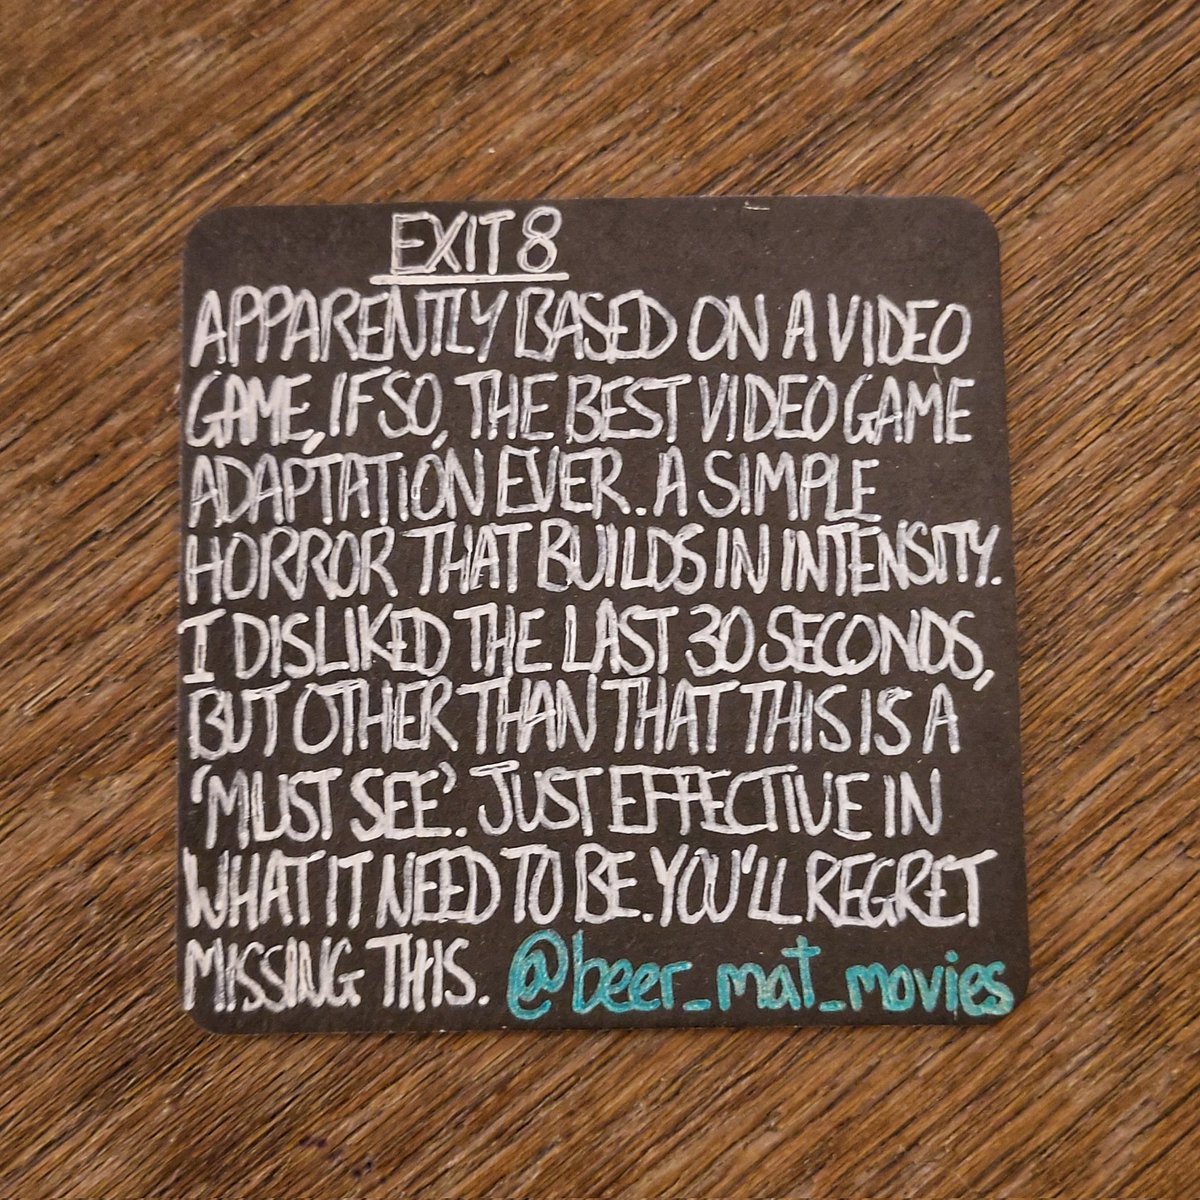 EXIT 8
APPARENTLY BASED ON A VIDEO
GAME, IF SO, THE BEST VIDEO GAME
ADAPTATION EVER. A SIMPLE
HORROR THAT BUILDS IN INTENSITY.
I DISLIKED THE LAST 30 SECONDS,
BUT OTHER THAN THAT THIS IS A
'MUST SEE'. JUST EFFECTIVE IN
WHAT IT NEED TO BE. YOU'LL REGRET
MISSING THIS. @beer_mat_movies